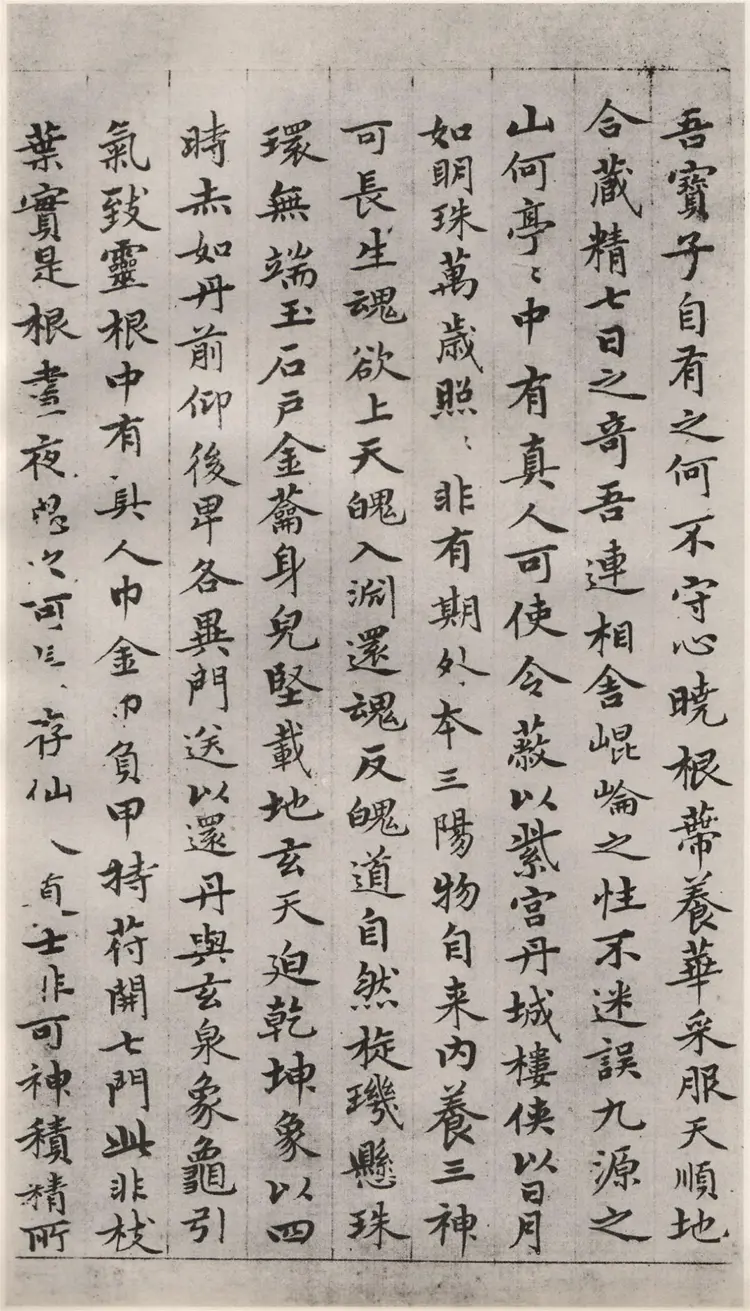 吾寶子自有之何不守心曉根蒂養華采服天順地
合藏精七日之奇吾連相舍崐崘之性不迷誤九源之
山何亭〻中有真人可使令蔽以紫宫丹城樓侠以日月
如明珠萬歲照〻非有期外本三陽物自来内養三神
可長生魂欲上天魄入淵還魂反魄道自然琁璣懸珠
環無端玉石戶金蘥身皃堅載地玄天迫乾坤象以四
時赤如丹前仰後卑各異門送以還丹與玄泉象龜引
氣致靈根中有真人巾金巾負甲持苻開七門此非枝
葉實是根晝夜思之可存仙士非可神積精所